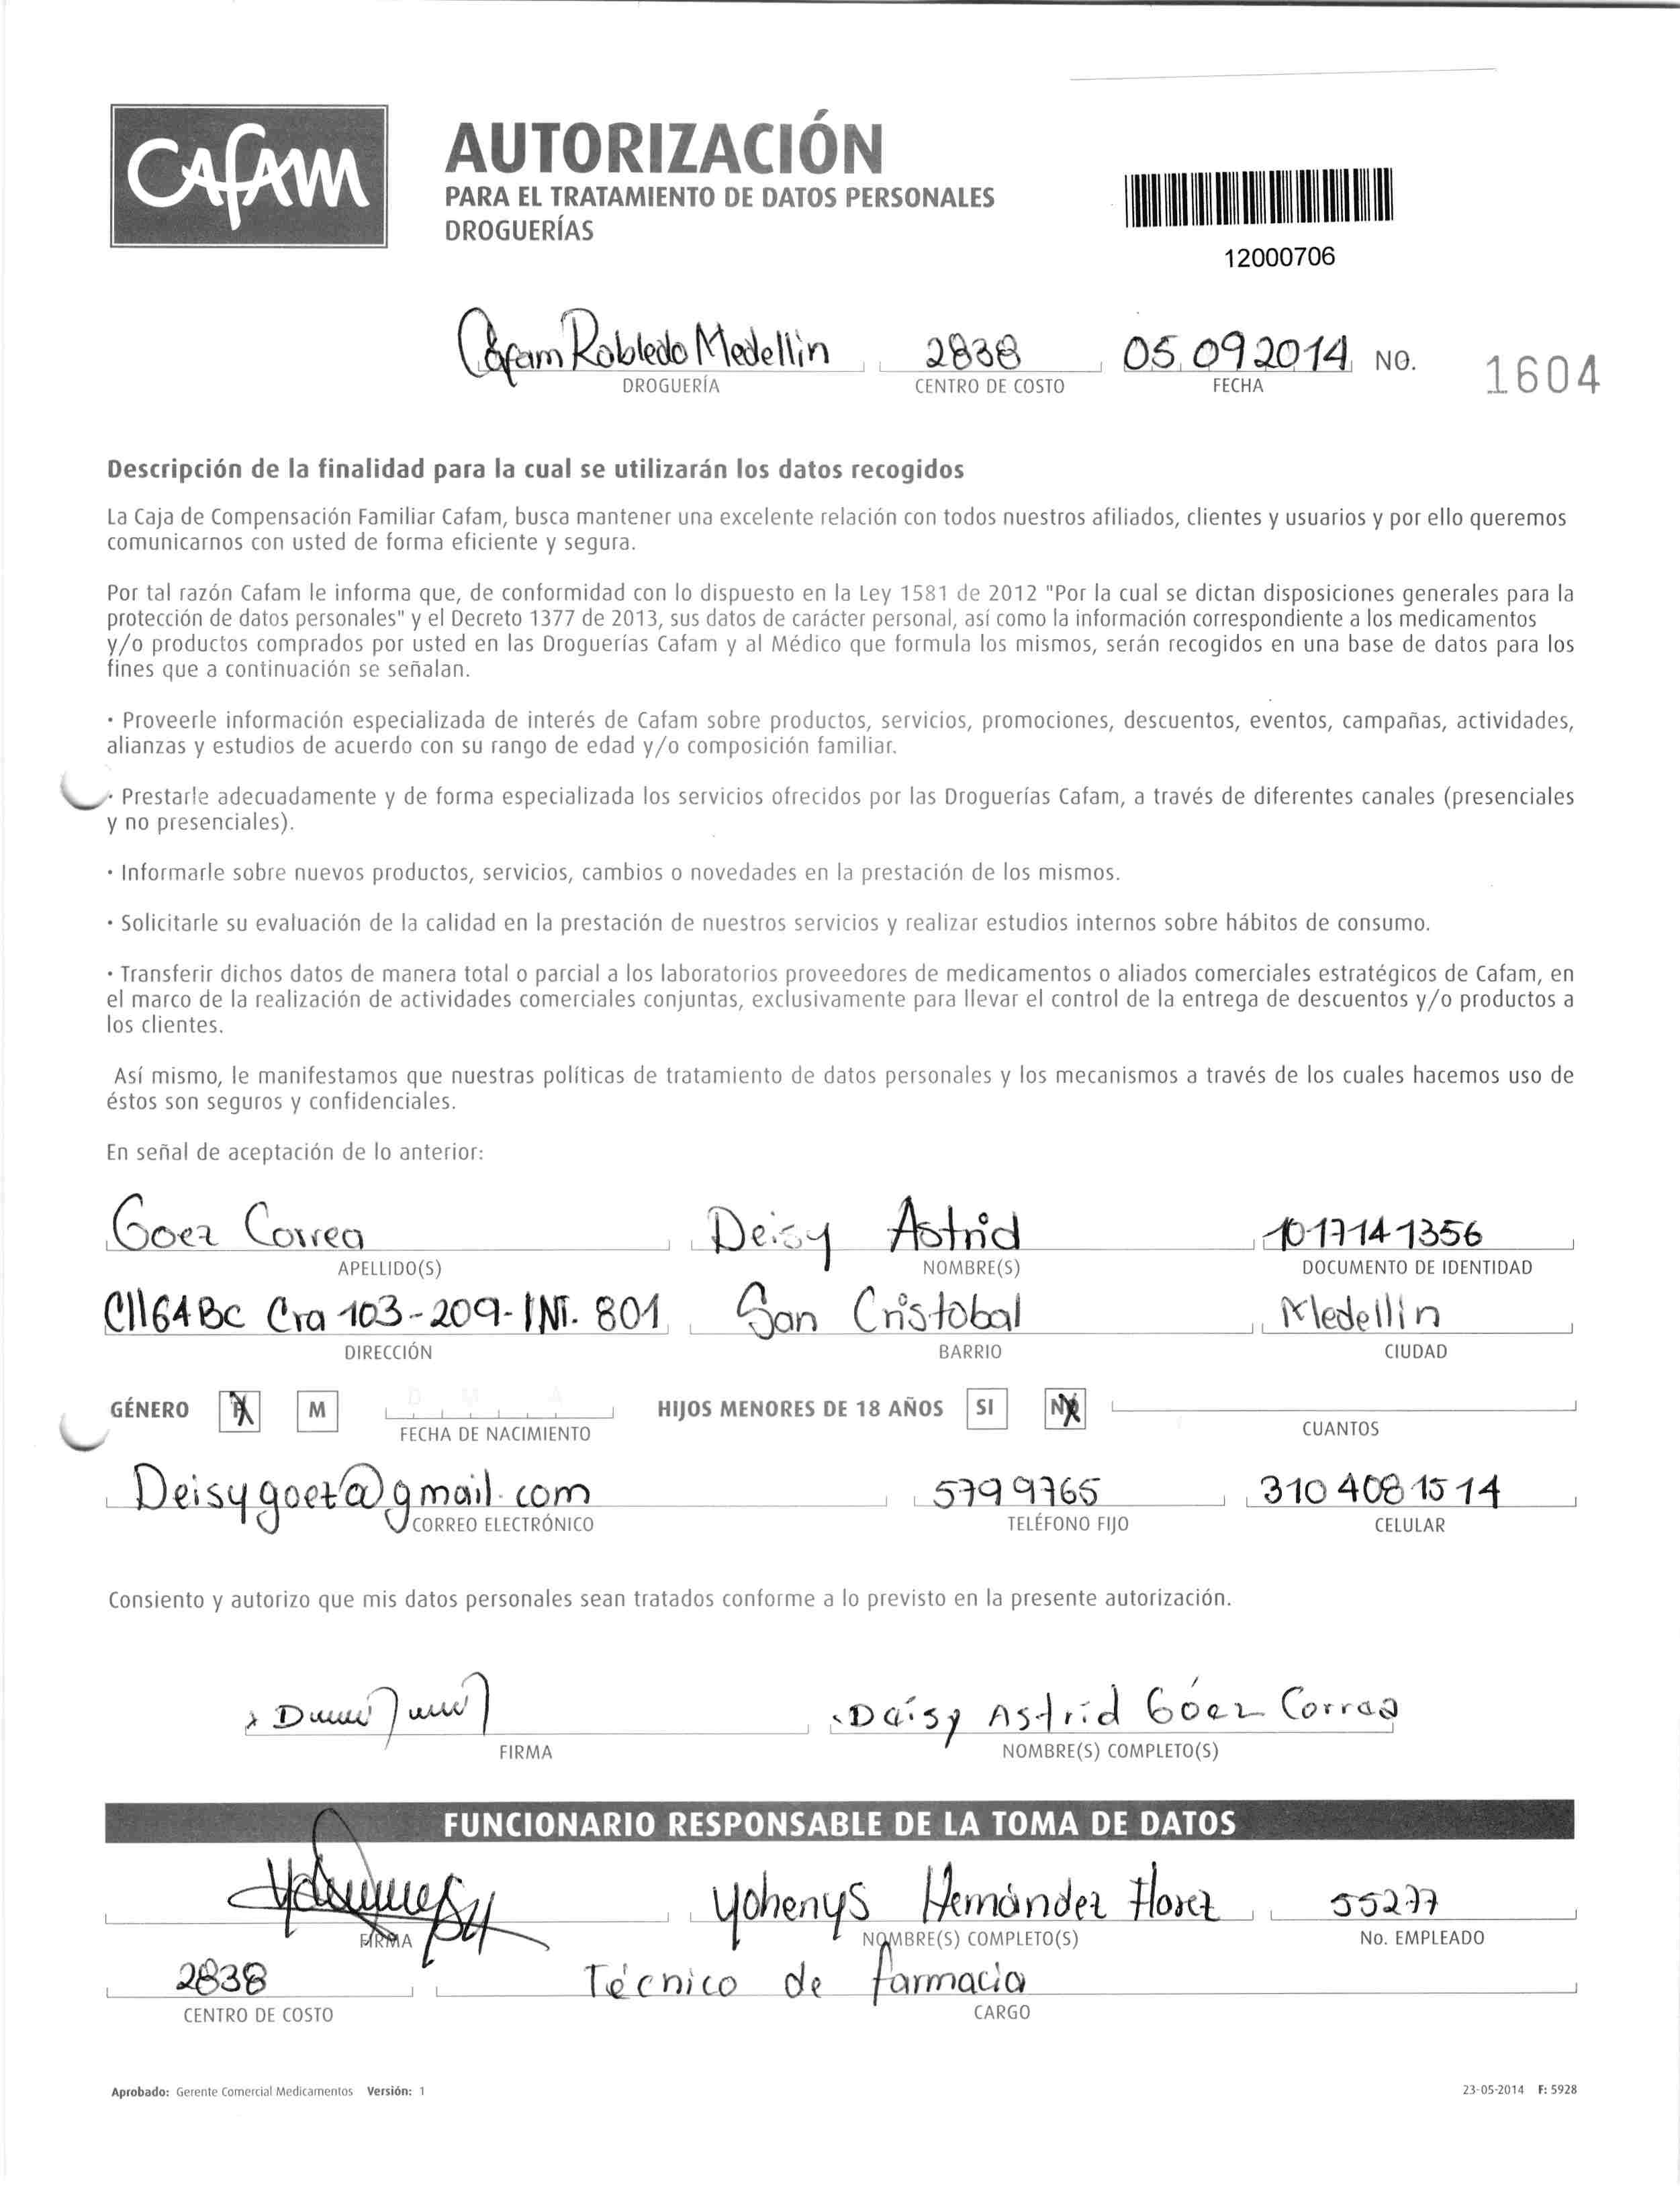 Cafam
AUTORIZACIÓN
PARA EL TRATAMIENTO DE DATOS PERSONALES
DROGUERÍAS
12000706
Cafam Robledo Medellin 2838 05 09 2014 NO. 1604
DROGUERÍA CENTRO DE COSTO FECHA
Descripción de la finalidad para la cual se utilizarán los datos recogidos
La Caja de Compensación Familiar Cafam, busca mantener una excelente relación con todos nuestros afiliados, clientes y usuarios y por ello queremos
comunicarnos con usted de forma eficiente y segura.
Por tal razón Cafam le informa que, de conformidad con lo dispuesto en la Ley 1581 de 2012 "Por la cual se dictan disposiciones generales para la
protección de datos personales" y el Decreto 1377 de 2013, sus datos de carácter personal, así como la información correspondiente a los medicamentos
y/o productos comprados por usted en las Droguerías Cafam y al Médico que formula los mismos, serán recogidos en una base de datos para los
fines que a continuación se señalan.
· Proveerle información especializada de interés de Cafam sobre productos, servicios, promociones, descuentos, eventos, campañas, actividades,
alianzas y estudios de acuerdo con su rango de edad y/o composición familiar.
· Prestarle adecuadamente y de forma especializada los servicios ofrecidos por las Droguerías Cafam, a través de diferentes canales (presenciales
y no presenciales).
· Informarle sobre nuevos productos, servicios, cambios o novedades en la prestación de los mismos.
· Solicitarle su evaluación de la calidad en la prestación de nuestros servicios y realizar estudios internos sobre hábitos de consumo.
· Transferir dichos datos de manera total o parcial a los laboratorios proveedores de medicamentos o aliados comerciales estratégicos de Cafam, en
el marco de la realización de actividades comerciales conjuntas, exclusivamente para llevar el control de la entrega de descuentos y/o productos a
los clientes.
Así mismo, le manifestamos que nuestras políticas de tratamiento de datos personales y los mecanismos a través de los cuales hacemos uso de
éstos son seguros y confidenciales.
En señal de aceptación de lo anterior:
Goez Correa Deisy Astrid 1017141356
APELLIDO(S) NOMBRE(S) DOCUMENTO DE IDENTIDAD
Cll64BC Cra 103-209-INT. 801 San Cristobal Medellin
DIRECCIÓN BARRIO CIUDAD
GÉNERO F M D M A HIJOS MENORES DE 18 AÑOS SI NO
FECHA DE NACIMIENTO CUANTOS
Deisygoez@gmail.com 5799765 310 408 1514
CORREO ELECTRÓNICO TELÉFONO FIJO CELULAR
Consiento y autorizo que mis datos personales sean tratados conforme a lo previsto en la presente autorización.
Deisy Astrid Góez Correa
FIRMA NOMBRE(S) COMPLETO(S)
FUNCIONARIO RESPONSABLE DE LA TOMA DE DATOS
Yohenys Hernández Florez 55277
FIRMA NOMBRE(S) COMPLETO(S) No. EMPLEADO
2838 Técnico de farmacia
CENTRO DE COSTO CARGO
Aprobado: Gerente Comercial Medicamentos Versión: 1 23-05-2014 F: 5928